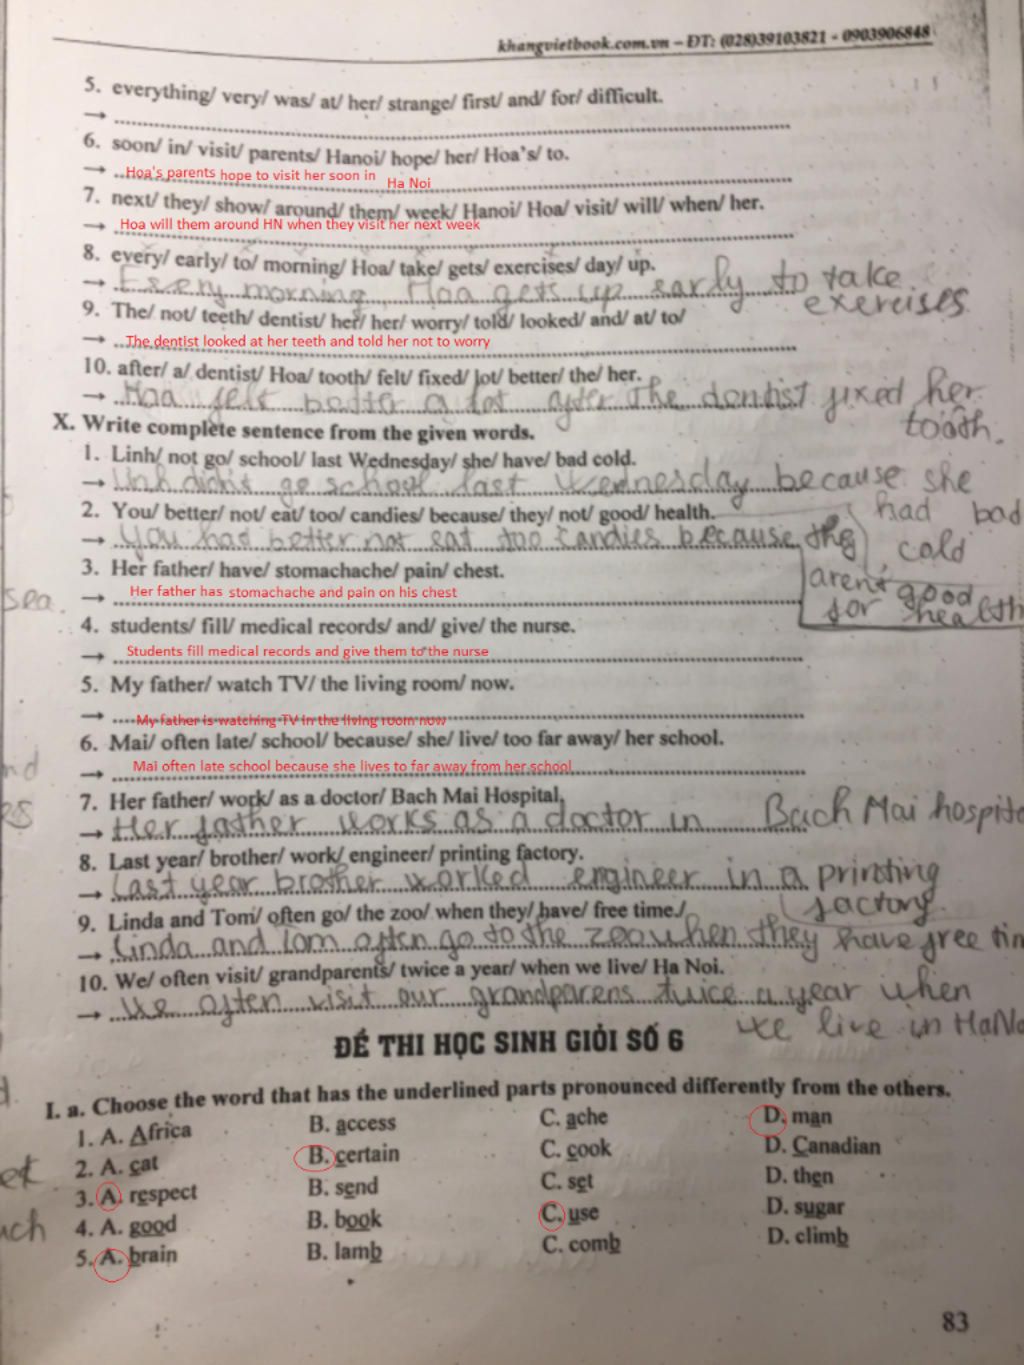 khangvietbook.com.vn – ĐT: (028)39103821 - 0903906848
5. everything/ very/ was/ at/ her/ strange/ first/ and/ for/ difficult.
→
6. soon/ in/ visit/ parents/ Hanoi/ hope/ her/ Hoa's/ to.
→ Hoa's parents hope to visit her soon in Ha Noi
7. next/ they/ show/ around/ them/ week/ Hanoi/ Hoa/ visit/ will/ when/ her.
→ Hoa will them around HN when they visit her next week
8. every/ early/ to/ morning/ Hoa/ take/ gets/ exercises/ day/ up.
→ Every morning, Hoa gets up early to take
exercises
9. The/ not/ teeth/ dentist/ her/ her/ worry/ told/ looked/ and/ at/ to/
→ The dentist looked at her teeth and told her not to worry
10. after/ a/ dentist/ Hoa/ tooth/ felt/ fixed/ lot/ better/ the/ her.
→ Hoa felt better a lot after the dentist fixed her
tooth.
X. Write complete sentence from the given words.
1. Linh/ not go/ school/ last Wednesday/ she/ have/ bad cold.
→ Linh didn't go school last Wednesday because she
had bad
cold
2. You/ better/ not/ eat/ too/ candies/ because/ they/ not/ good/ health.
→ You had better not eat too candies because they
aren't good
for health
3. Her father/ have/ stomachache/ pain/ chest.
sea.
→ Her father has stomachache and pain on his chest
4. students/ fill/ medical records/ and/ give/ the nurse.
→ Students fill medical records and give them to the nurse
5. My father/ watch TV/ the living room/ now.
→ My father is watching TV in the living room now
6. Mai/ often late/ school/ because/ she/ live/ too far away/ her school.
nd
→ Mai often late school because she lives to far away from her school
7. Her father/ work/ as a doctor/ Bach Mai Hospital.
es
→ Her father works as a doctor in Bach Mai hospita
8. Last year/ brother/ work/ engineer/ printing factory.
→ Last year brother worked engineer in a printing
factory.
9. Linda and Tom/ often go/ the zoo/ when they/ have/ free time./
→ Linda and Tom often go to the zoo when they have free tim
10. We/ often visit/ grandparents/ twice a year/ when we live/ Ha Noi.
→ We often visit our grandparens twice a year when
we live in HaNo
ĐỀ THI HỌC SINH GIỎI SỐ 6
d.
I. a. Choose the word that has the underlined parts pronounced differently from the others.
1. A. Africa B. access C. ache D. man
2. A. cat B. certain C. cook D. Canadian
et
3. A. respect B. send C. set D. then
uch
4. A. good B. book C. use D. sugar
5. A. brain B. lamb C. comb D. climb
83